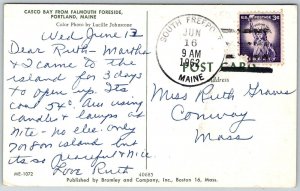 CASCO BAY FROM FALMOUTH FORESIDE,
PORTLAND, MAINE
Color Photo by Lucille Johnscone
Wed June 13
Dear Ruth - Martha
& I came to the
island for 3 days
to open it. Its
cold 54°. Am using
candles & lamps at
Nite - no elec. only
on island but
its so peaceful & nice.
Love Ruth
ME-1072
40685
Published by Bromley and Company, Inc., Boston 16, Mass.
SOUTH FREEPORT
JUN
16
9 AM
1962
MAINE
U.S. POSTAGE 3¢
LIBERTY
POST CARD
Address
Miss Ruth Graves
Conway
Mass